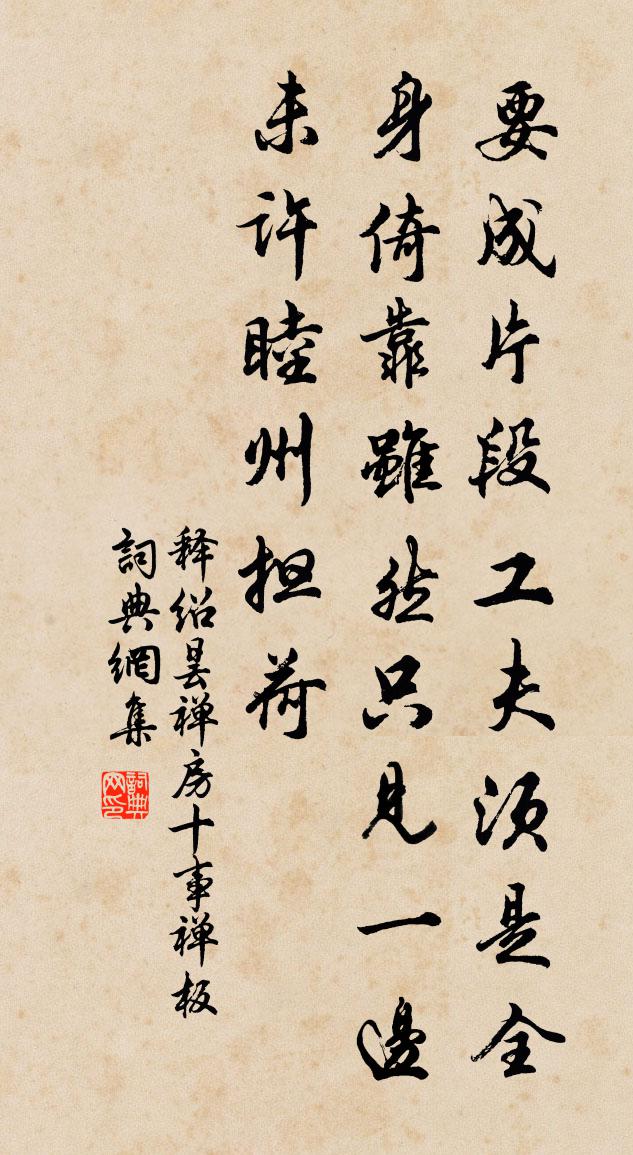 要成片段工夫须是全
身倚靠雖然只見一邊
未许睦州担荷
释绍昙禅房十事禅板
詞典網集
詞典网印